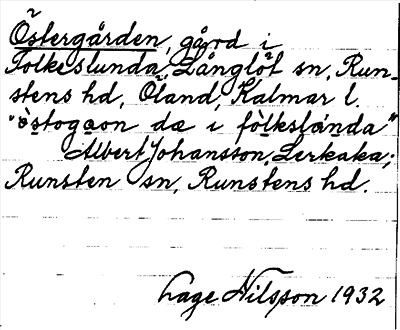 Östergården, gård i
Folkeslunda, Långlöt sn, Run-
stens hd, Öland, Kalmar l.
"östogaon da i fòlkslánda"
Albert Johansson, Lerkaka,
Runsten sn, Runstens hd.
Lage Nilsson 1932